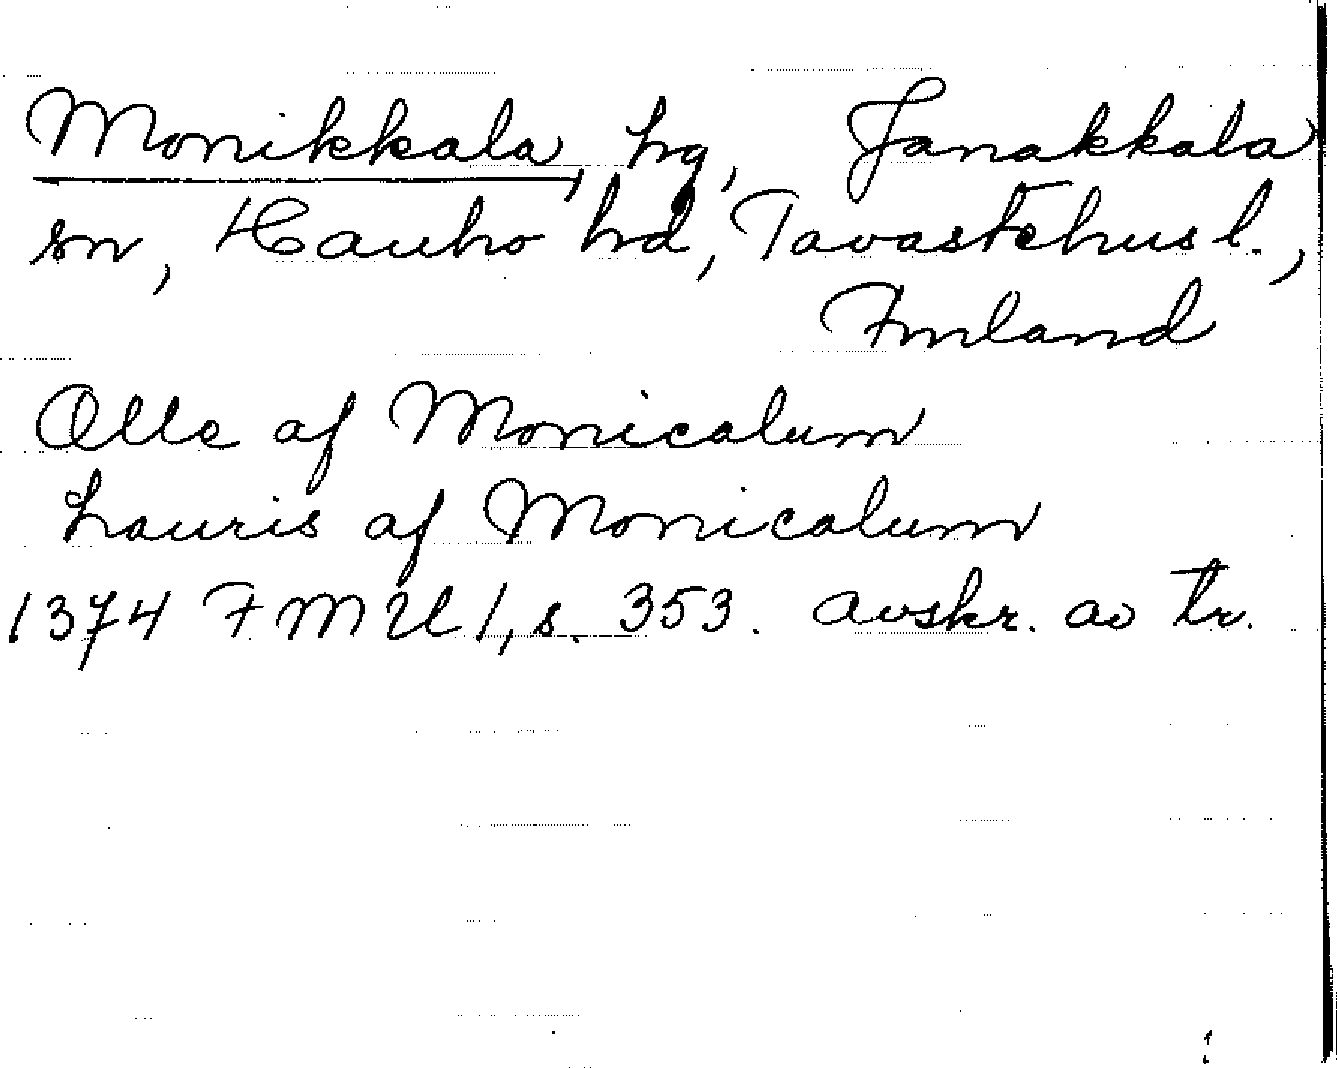 Monikkala, hg, Janakkala
sn, Hauho hd, Tavastehus l.,
Finland
Olle af Monicalum
Lauris af Monicalum
1374 FMU 1, s. 353. avskr. av tr.